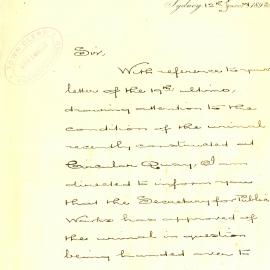 Sydney 12th
TOWN CLERK
Sir,
With reference to your
letter of the 19th ultimo,
drawing attention to the
condition of the urinal
recently constructed at
Circular Quay, I am
directed to inform you
that the Secretary for Public
Works has approved of
the urinal in question
being handed over to